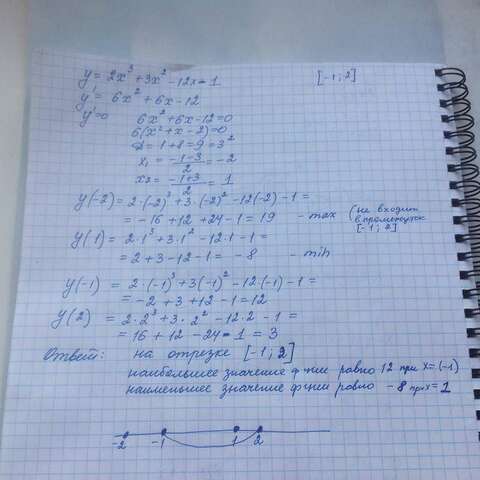 y = 2x³ + 3x² - 12x - 1 [-1; 2]
y' = 6x² + 6x - 12
y' = 0 6x² + 6x - 12 = 0
6(x² + x - 2) = 0
D = 1 + 8 = 9 = 3²
x₁ = (-1-3)/2 = -2
x₂ = (-1+3)/2 = 1
y(-2) = 2·(-2)³ + 3·(-2)² - 12(-2) - 1 =
= -16 + 12 + 24 - 1 = 19 - max (не входит в промежуток [-1; 2]
y(1) = 2·1³ + 3·1² - 12·1 - 1 =
= 2 + 3 - 12 - 1 = -8 - min
y(-1) = 2·(-1)³ + 3(-1)² - 12·(-1) - 1 =
= -2 + 3 + 12 - 1 = 12
y(2) = 2·2³ + 3·2² - 12·2 - 1 =
= 16 + 12 - 24 - 1 = 3
Ответ: на отрезке [-1; 2]
наибольшее значение ф-ции равно 12 при x = (-1)
наименьшее значение ф-ции равно -8 при x = 1
-2 -1 1 2